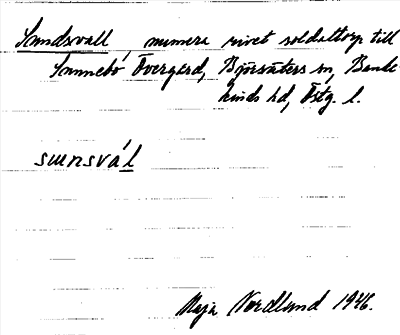 Sundsvall, numera rivet soldattorp till
Sunnebo Övergård, Björsäters sn, Banke
kinds hd, Östg. l.
sunsvál
Maja Nordlund 1946.